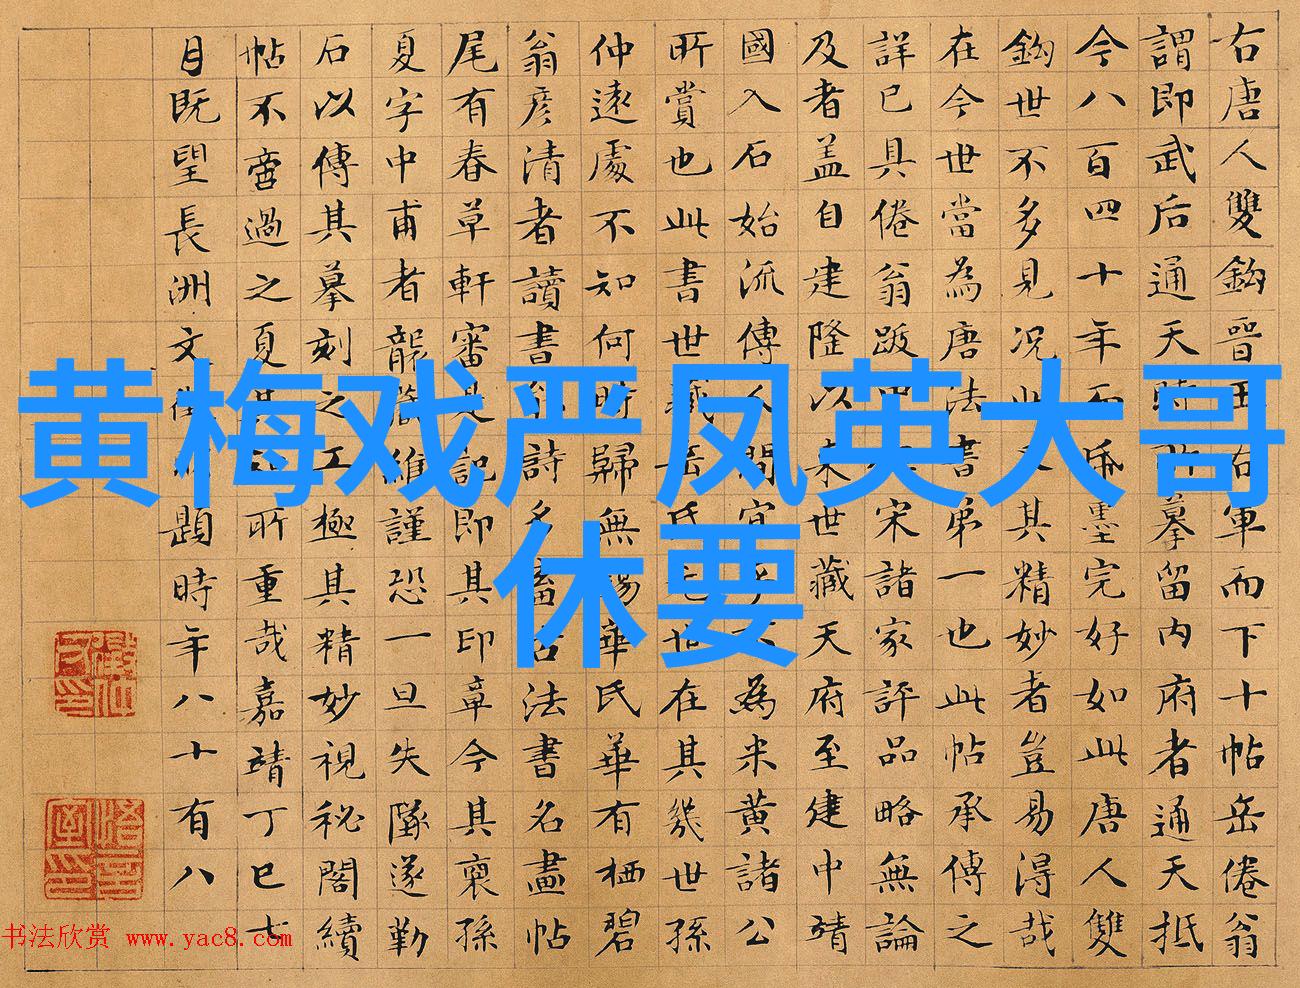 黄梅戏严凤英大哥
休要
右唐人雙鈎晉王右軍而下十帖岳倦翁
謂即武后通天時所摹留内府者通天抵
今八百四十年而紙墨完好如此唐人雙
鈎世不多見况此又其精妙者豈易得哉
在今世當為唐法書第一也此帖承傳之
詳已具倦翁跋宋諸家評品略無論
及者盖自建隆以来世藏天府至建中靖
國入石始流傳人間宜為米黄諸公
所賞也此書世藏岳氏世在其幾世孫
仲遠處不知何時歸無錫華氏華有栖碧
翁彦清者讀書能詩多畜古法書名畫帖
尾有春草軒審定記即其印章今其裔孫
夏字中甫者龍維謹恐一旦失墜遂勒
石以傳其摹刻之工極其精妙視秘閣續
帖不啻過之夏其所重哉嘉靖丁巳七
月既望長洲文徵明題時年八十有八
书法欣赏 www.yac8.com